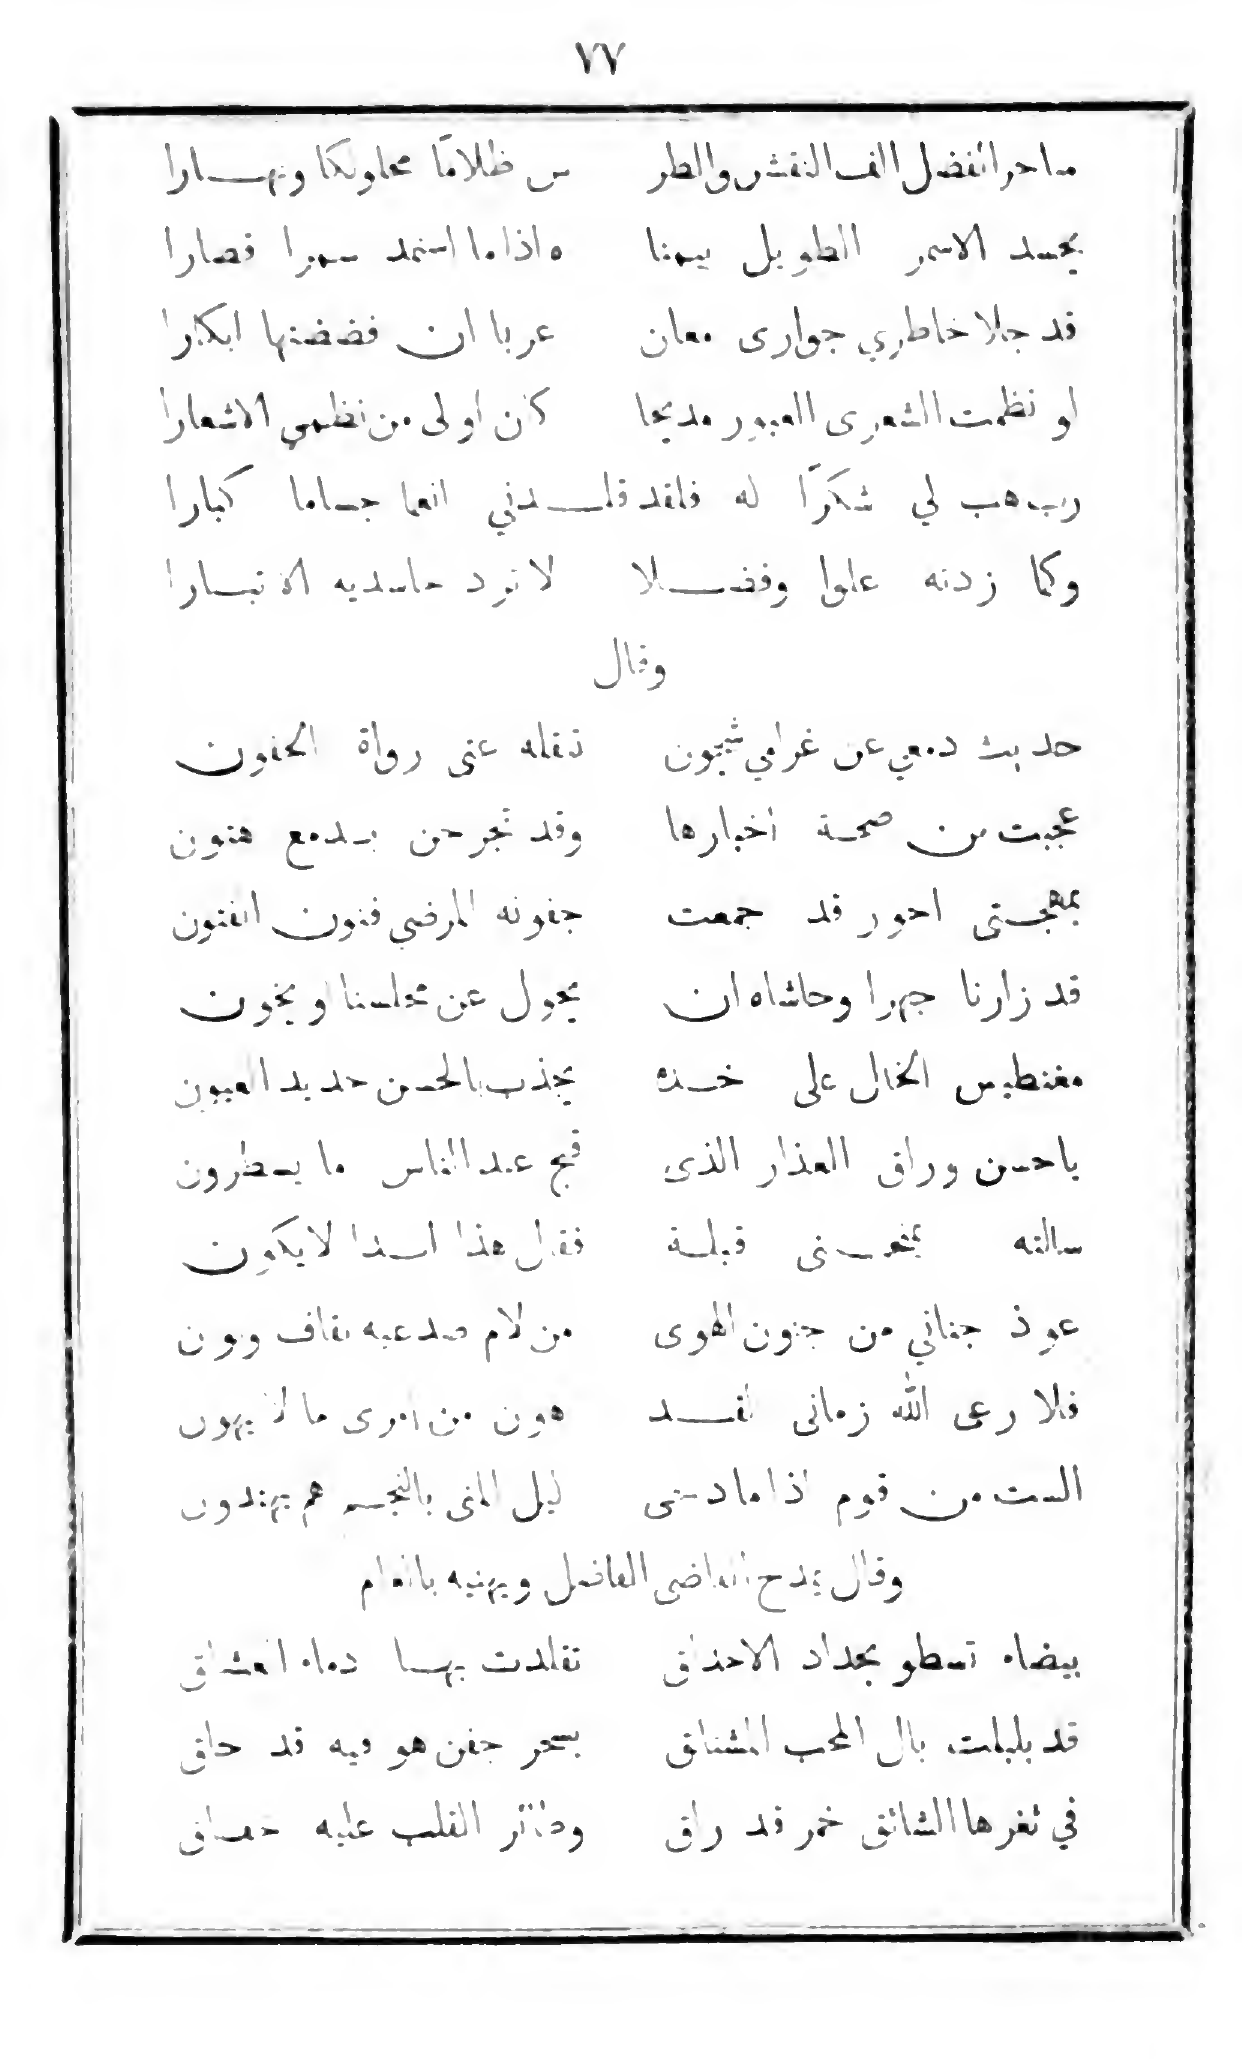 ٧٧
ساحر الفضل الف النقش والطر س ظلامًا محاولكا ونهـارا
يحسد الاسمر الطويل بيمنا ه اذا ما استمد سمرا قصارا
قد جلا خاطري جوارى معان عربا ان فضضتها ابكارا
لو نظمت الشعرى العبور مديحا كان اولى من نظمي الاشعارا
رب هب لي شكرًا له فلقد قلـدني انعما جساما كبارا
وكما زدته علوا وفضـلا لا تزد حاسديه الا تبـارا
وقال
حديث دمعي عن غرامي شجون تنقله عنى رواة الجفون
عجبت من صحة اخبارها وقد تجرحن بـدمع هتون
بمهجتى احور قد جمعت جفونه المرضي فنون الفتون
قد زارنا جهرا وحاشاه ان يحول عن مجلسنا او يخون
مغنطيس الخال على خـده يجذب بالحسن حديد العيون
ياحسن وراق العذار الذى قبح عند الناس ما يسطرون
سالته يمنحـنى قبلـة فقال هذا ابـدا لايكون
عوذ جنانى من جنون الهوى من لام صدغيه بقاف ونون
فلا رعى الله زمانى لقـد هون من امرى ما لا يهون
الست من قوم اذا ما دجى ليل المنى بالنجـم هم يهتدون
وقال يمدح القاضى الفاضل ويهنيه بالعام
بيضاء تسطو بحداد الاحداق تقلدت بهـا دماء العشاق
قد بلبلت بال المحب المشتاق بسحر جفن هو فيه قد حاق
في ثغرها الشائق خمر قد راق وطائر القلب عليه خفـاق